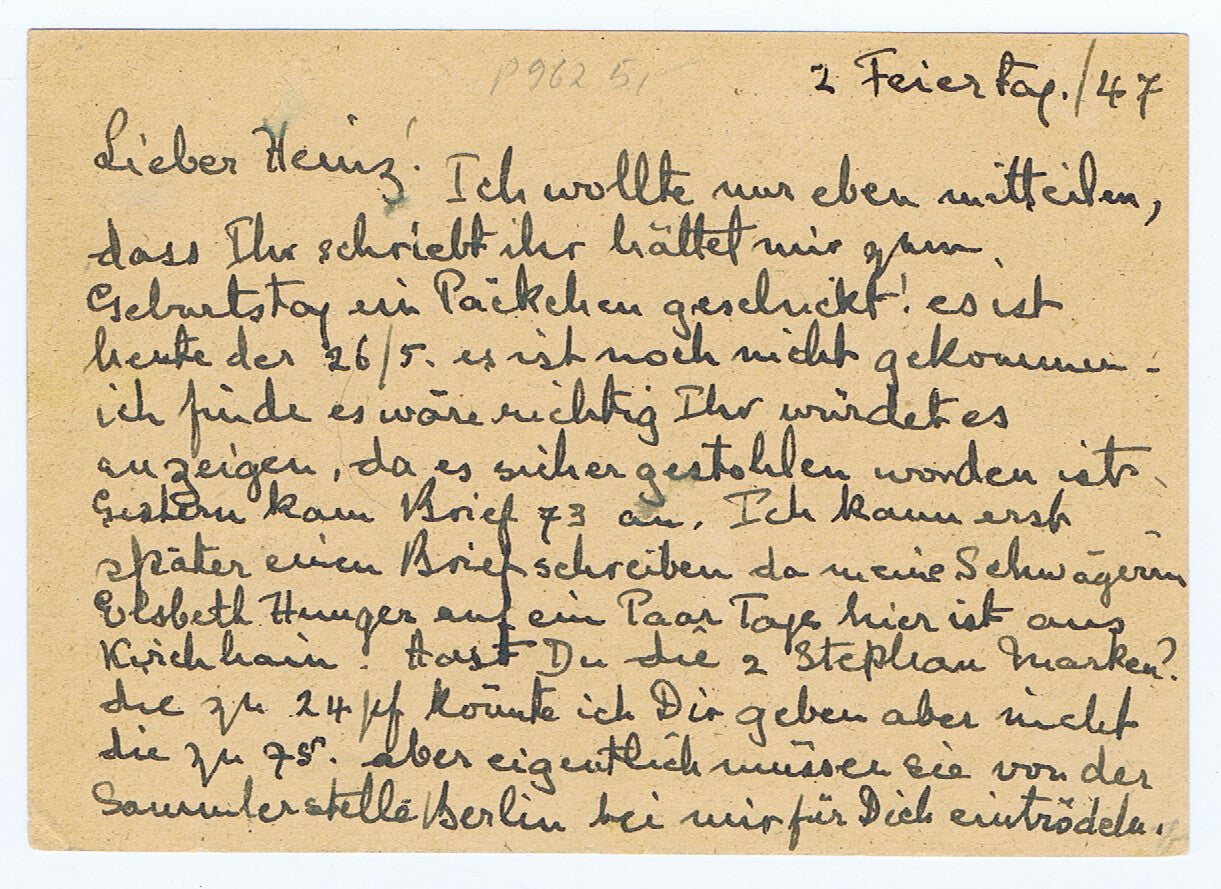 P962 5,
2 Feiertag./47
Lieber Heinz!
Ich wollte nur eben mitteilen,
dass Ihr schriebt ihr hättet mir zum
Geburtstag ein Päckchen geschickt! es ist
heute der 26/5. es ist noch nicht gekommen -
ich finde es wäre richtig Ihr würdet es
anzeigen, da es sicher gestohlen worden ist.
Gestern kam Brief 73 an. Ich kann erst
später einen Brief schreiben da meine Schwägerin
Elsbeth Hunger auf ein Paar Tage hier ist aus
Kirchhain. Hast Du die 2 Stephan Marken?
die zu 24 pf könnte ich Dir geben aber nicht
die zu 75. aber eigentlich müssen sie von der
Sammlerstelle Berlin bei mir für Dich eintrödeln.